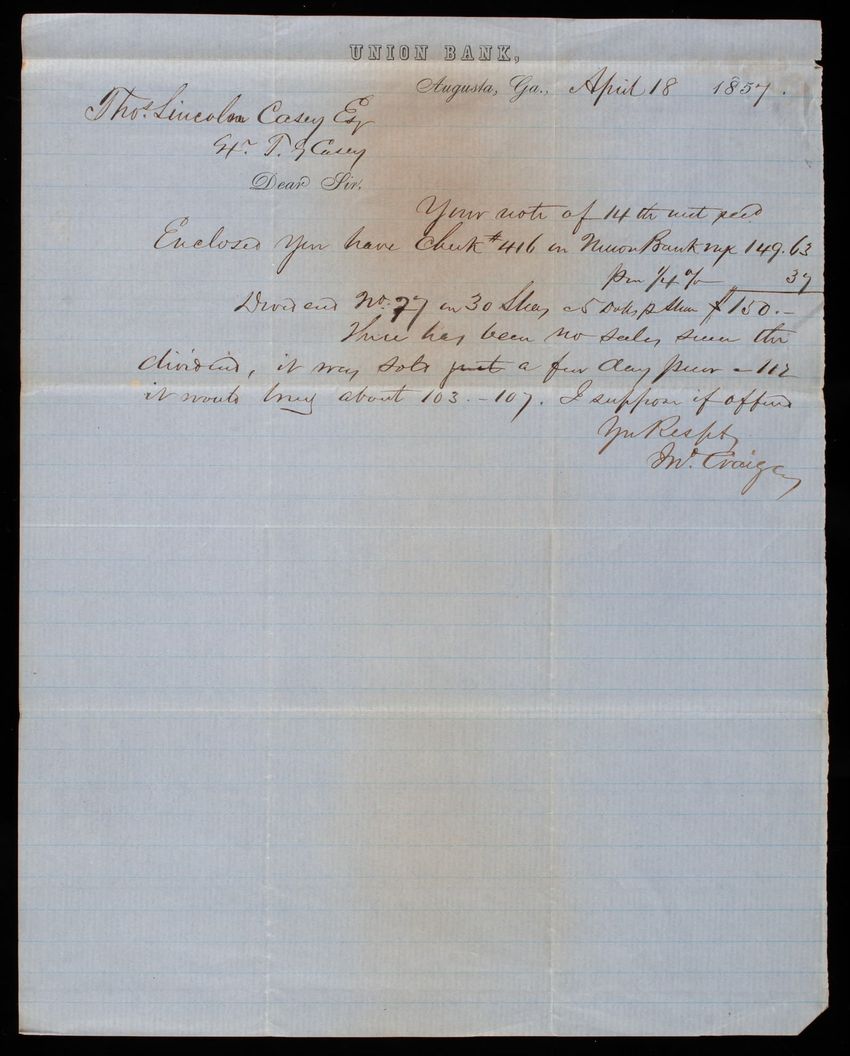 UNION BANK,
Augusta, Ga., April 18 1857.
Thos. Lincoln Casey Esq
T. L Casey
Dear Sir.
Your note of 14th inst recd
Enclosed you have Check #416 on Union Bank 149.63
Prm 1/4 % 37
Dividend No. 77 on 30 Shas 5 Dolls p Share $150.-
There has been no sales since the
dividend, it was sold just a few days prior - 112
it would bring about 103.-107. I suppose if offered
Yr Respty
Jno. Craig